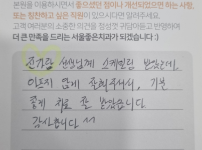 본원을 이용하시면서 좋으셨던 점이나 개선되었으면 하는 사항,
또는 칭찬하고 싶은 직원이 있으시다면 알려주세요.
고객 여러분의 소중한 의견을 정성껏 귀담아듣고 반영하여
더 큰 만족을 드리는 서울좋은치과가 되겠습니다 :)
선생님께 스케일링 받았는데,
아프지 않게 잘해주셔서, 기분
좋게 치료 잘 받았습니다
감사합니다